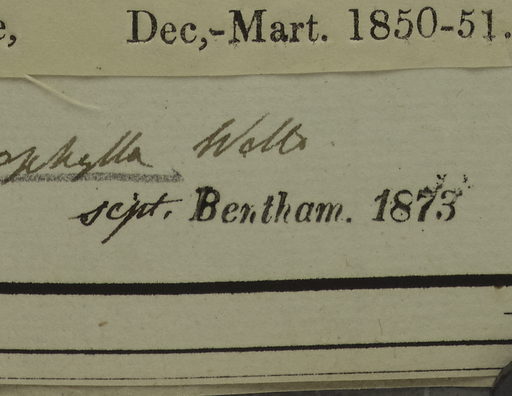 Dec,-Mart. 1850-51.
ophylla Wall.
script. Bentham. 1873